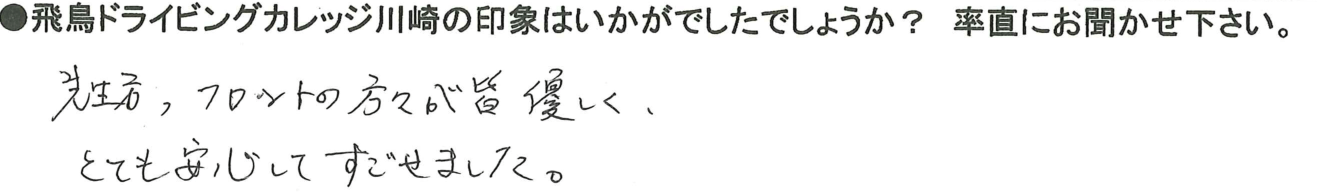 ●飛鳥ドライビングカレッジ川崎の印象はいかがでしたでしょうか？　率直にお聞かせ下さい。
先生方，フロントの方々が皆優しく、
とても安心してすごせました。